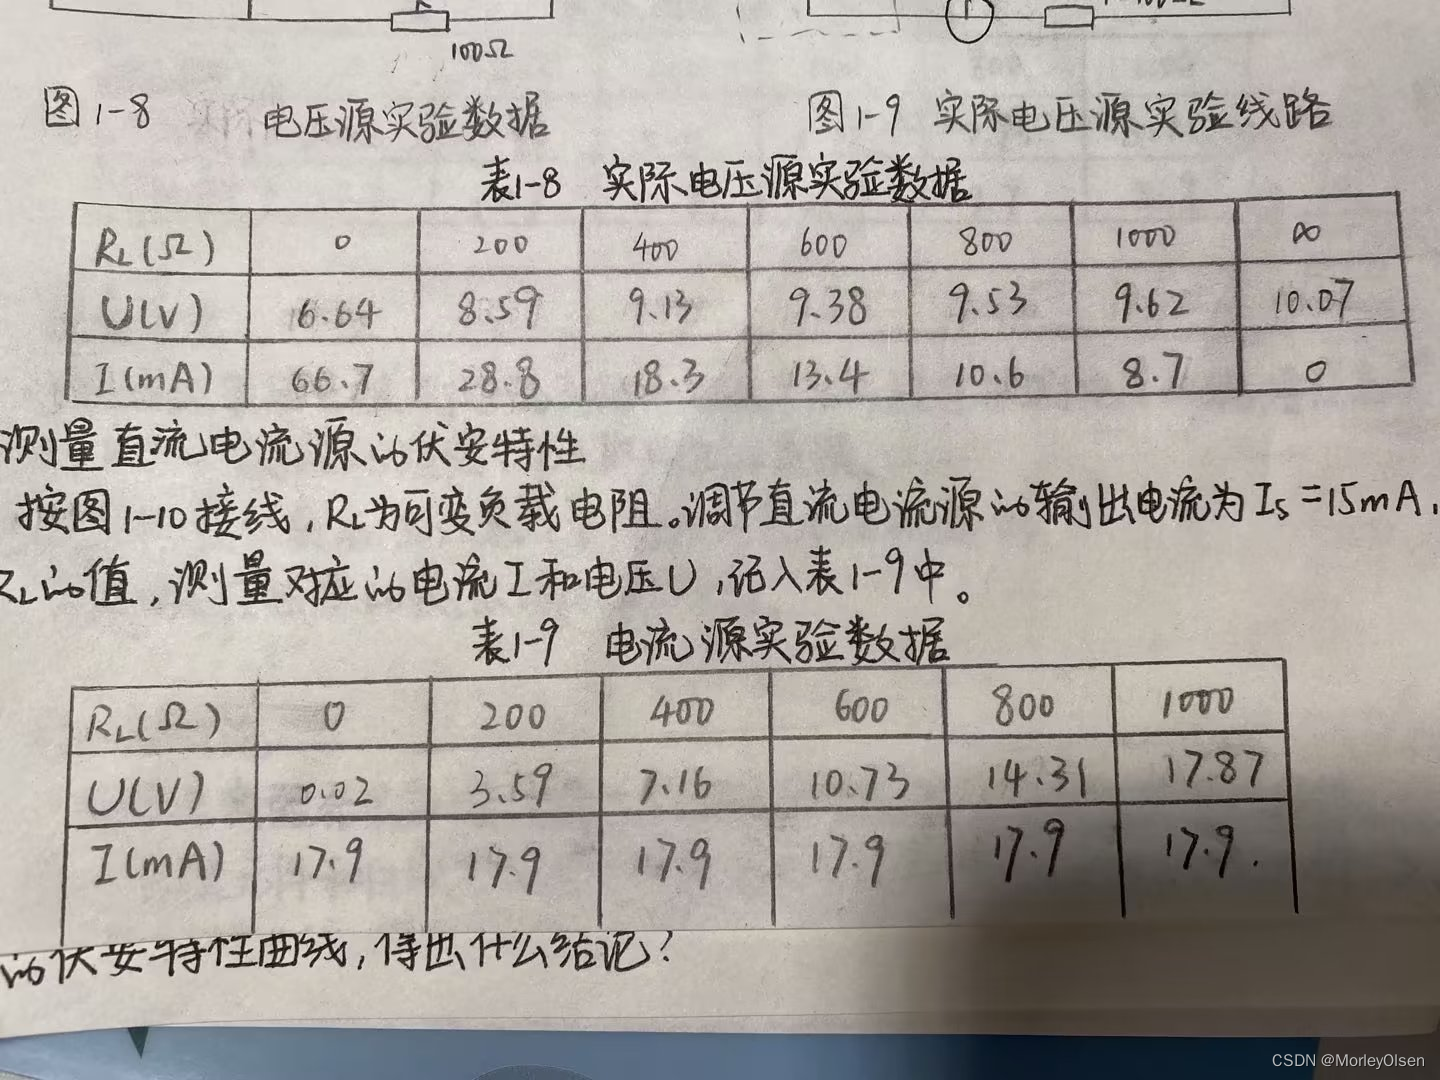 100Ω
图1-8 电压源实验数据
图1-9 实际电压源实验线路
表1-8 实际电压源实验数据
RL(Ω) 0 200 400 600 800 1000 ∞
U(V) 6.64 8.59 9.13 9.38 9.53 9.62 10.07
I(mA) 66.7 28.8 18.3 13.4 10.6 8.7 0
测量直流电流源的伏安特性
按图1-10接线,RL为可变负载电阻。调节直流电流源的输出电流为Is=15mA,
RL的值,测量对应的电流I和电压U,记入表1-9中。
表1-9 电流源实验数据
RL(Ω) 0 200 400 600 800 1000
U(V) 0.02 3.59 7.16 10.73 14.31 17.87
I(mA) 17.9 17.9 17.9 17.9 17.9 17.9.
的伏安特性曲线,得出什么结论?
CSDN @MorleyOlsen